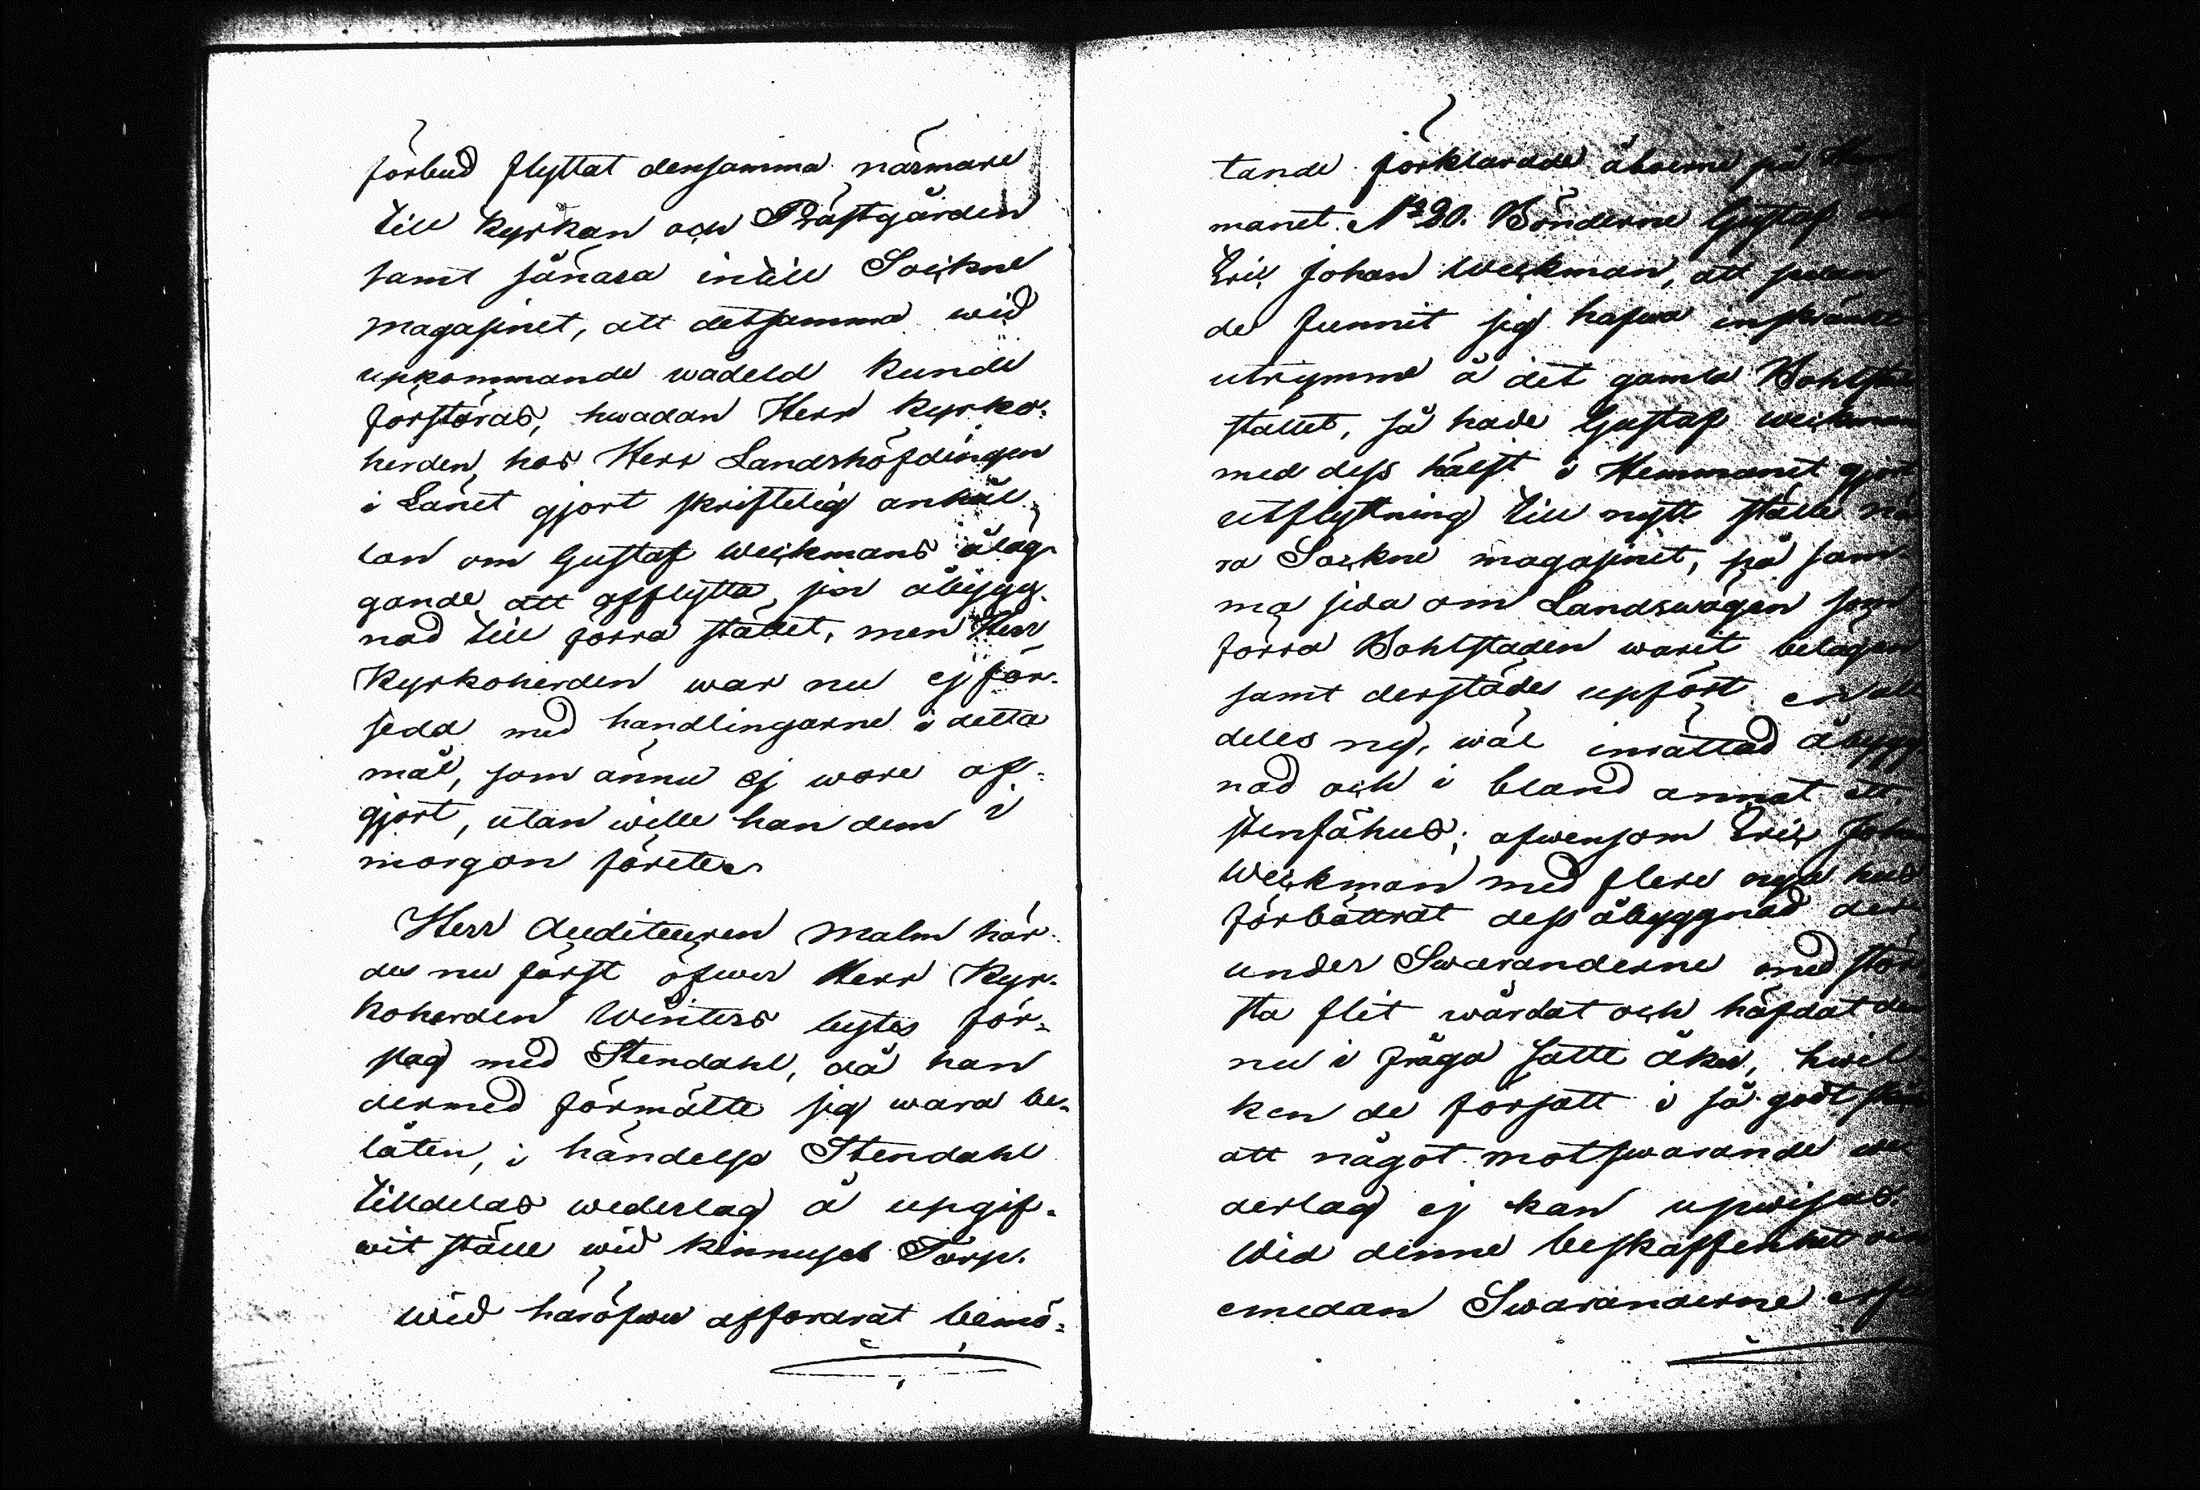 förbud flyttat densamma närmare
till Kyrkan och Prästgården
samt så nära intill Sockne
magasinet, att detsamma wid
upkommande wådeld kunde
förstöras, hwadan Herr Kyrko-
herden, hos Herr Landshöfdingen
i Länet gjort skriftelig anhål-
lan om Gustaf Weckmans åläg-
gande att afflytta sin åbygg-
nad till förra stället, men Herr
Kyrkoherden war nu ej för-
sedd med handlingarne i detta
mål, som ännu ej wore af-
gjort, utan wille han dem i
morgon förete.
Herr Auditeuren Malm hör-
des nu först öfwer Herr Kyr-
koherden Winters bytes för-
slag med Stendahl, då han
dermed förmälte sig wara be-
låten, i händelse Stendahl
tilldelas wederlag å upgif-
wit ställe wid Kinnusels Torp.
Wid häröfwer affordrat bemö-
tande förklarade åboerne på
manet No 20. Bönderne Gustaf och
Eric Johan Weckman, att sedan
de funnit sig hafwa inskränkt
utrymme å det gamla Bohlsta
stället, så hade Gustaf Weckman
med dess hälft i Hemmanet gjort
utflyttning till nytt ställe nä
ra Sockne magasinet, på sam-
ma sida om Landswägen som
förra Bohlstaden warit belägen
samt derstädes upfört en all
deles ny, wäl inrättad åbygg
nad och i bland annat ett
stenfähus; äfwensom Eric Johan
Weckman med flere nya hus
förbättrat dess åbyggnad der
under Swaranderne med stör
sta flit wårdat och häfdat den
nu i fråga satte åker, hwil-
ken de försatt i så godt skick
att något motswarande we
derlag ej kan upwisas.
Wid denne beskaffenhet
emedan Swaranderne